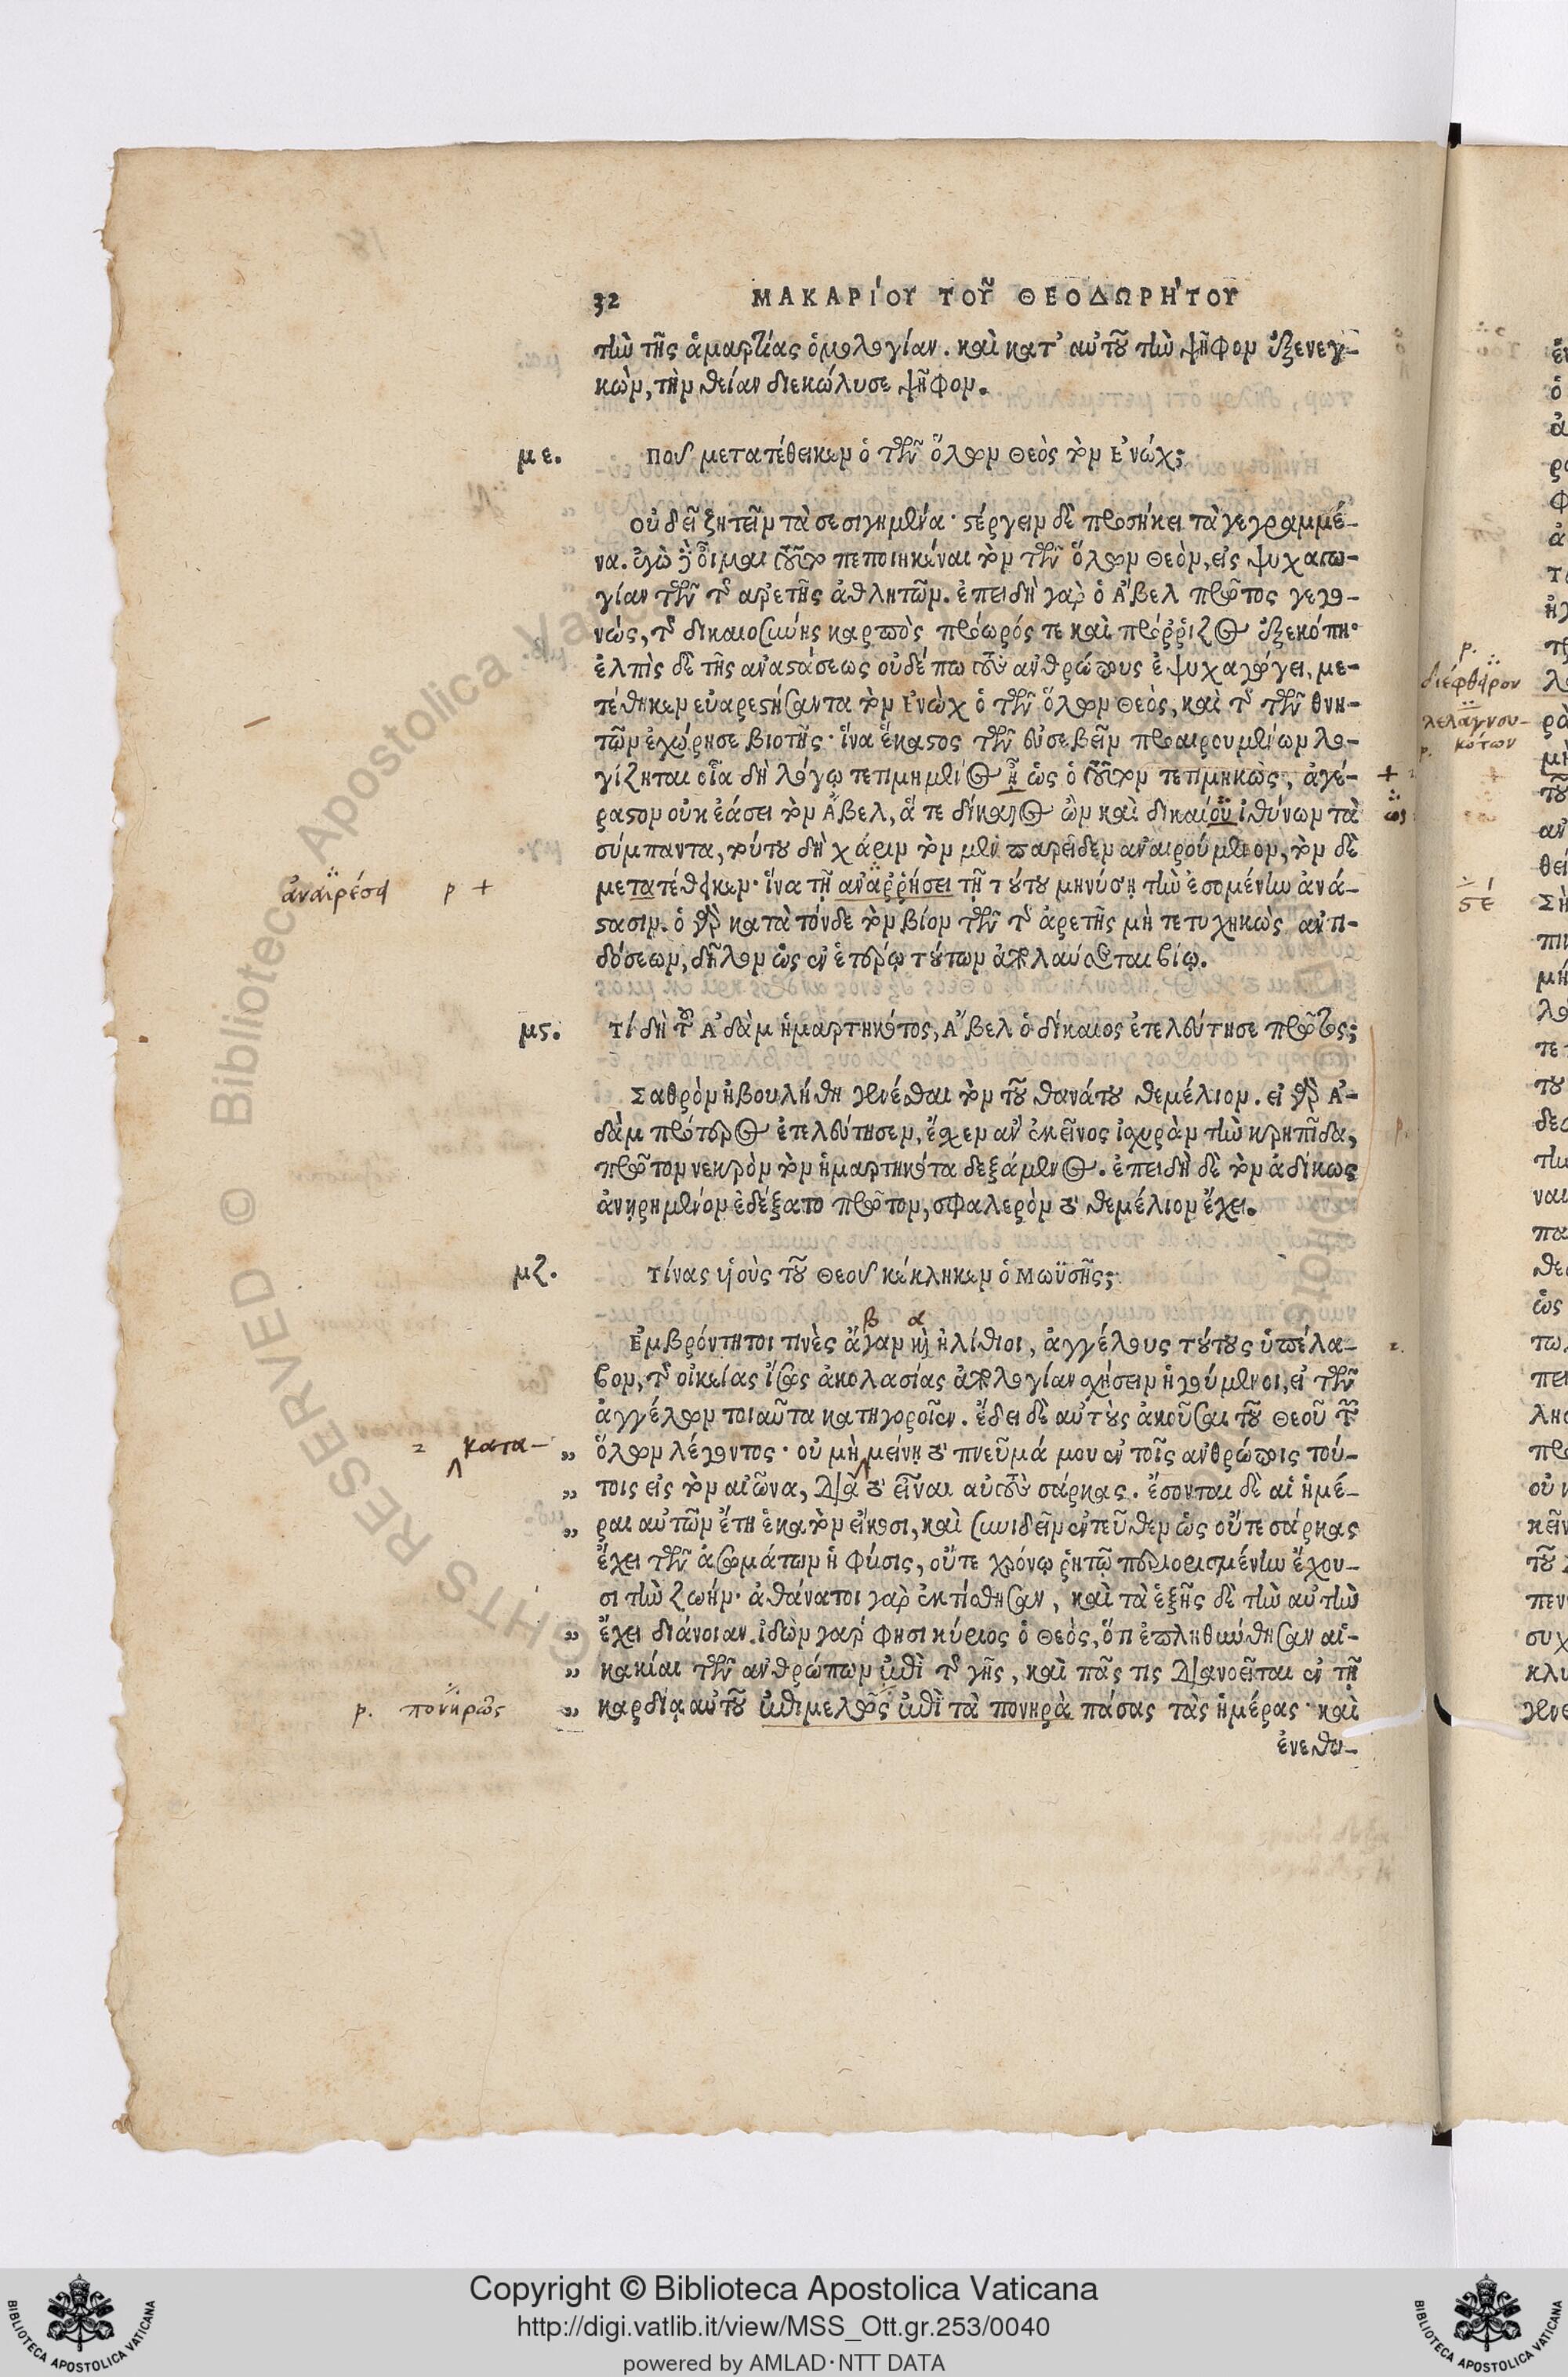 32 ΜΑΚΑΡΊΟΥ ΤΟΥ͂ ΘΕΟΔΩΡΉΤΟΥ
τὴν τῆς ἁμαρτίας ὁμολογίαν. καὶ κατ' αὐτοῦ τὴν ψῆφον ἐξενεγ-
κὼν, τὴν θείαν διεκώλυσε ψῆφον.
με. Ποῦ μετατέθεικεν ὁ τῶν ὅλων Θεὸς τὸν Ἐνώχ;
Οὐ δεῖ ζητεῖν τὰ σεσιγημένα· στέργειν δὲ προσήκει τὰ γεγραμμέ-
να. ἐγὼ δὲ οἶμαι τοῦτο πεποιηκέναι τὸν τῶν ὅλων Θεὸν, εἰς ψυχαγω-
γίαν τῶν τῆς ἀρετῆς ἀθλητῶν. ἐπειδὴ γὰρ ὁ Ἄβελ πρῶτος γεγο-
νὼς, τῆς δικαιοσύνης καρπὸς πρόωρός τε καὶ πρόρριζος ἐξεκόπη·
ἐλπὶς δὲ τῆς ἀναστάσεως οὐδέπω τοὺς ἀνθρώπους ἐψυχαγώγει, με-
τέθηκεν εὐαρεστήσαντα τὸν Ἐνὼχ ὁ τῶν ὅλων Θεὸς, καὶ τῆς τῶν θνη-
τῶν ἐχώρησε βιοτῆς· ἵνα ἕκαστος τῶν εὐσεβεῖν προαιρουμένων λο-
γίζηται οἷα δὴ λόγῳ τετιμημένος ᾖ ὡς ὁ τοῦτον τετιμηκὼς, ἀγέ- +
ραστον οὐκ ἐάσει τὸν Ἄβελ, ἅ τε δίκαιος ὢν καὶ δικαίου ἰθύνων τὰ ως
σύμπαντα, τούτου δὴ χάριν τὸν μὲν παρεῖδεν ἀναιρούμενον, τὸν δὲ
ἀναιρέσει p + μετατέθηκεν· ἵνα τῇ ἀναρρήσει τῇ τούτου μηνύσῃ τὴν ἐσομένην ἀνά-
στασιν. ὁ γὰρ κατὰ τόνδε τὸν βίον τῶν τῆς ἀρετῆς μὴ τετυχηκὼς ἀντι-
δόσεων, δῆλον ὡς ἐν ἑτέρῳ τούτων ἀπολαύσεται βίῳ.
μς. Τί δὴ τοῦ Ἀδὰμ ἡμαρτηκότος, Ἄβελ ὁ δίκαιος ἐτελεύτησε πρῶτος;
Σαθρὸν ἠβουλήθη γενέσθαι τὸν τοῦ θανάτου θεμέλιον. εἰ γὰρ Ἀ-
δὰμ πρότερος ἐτελεύτησεν, ἔσχεν ἂν ἐκεῖνος ἰσχυρὰν τὴν κρηπῖδα, p.
πρῶτον νεκρὸν τὸν ἡμαρτηκότα δεξάμενος. ἐπειδὴ δὲ τὸν ἀδίκως
ἀνῃρημένον ἐδέξατο πρῶτον, σφαλερὸν τὸ θεμέλιον ἔχει.
μζ. Τίνας υἱοὺς τοῦ Θεοῦ κέκληκεν ὁ Μωϋσῆς;
β α
Ἐμβρόντητοι τινὲς ἄγαν καὶ ἠλίθιοι, ἀγγέλους τούτους ὑπέλα- 2.
βον, τῆς οἰκείας ἴσως ἀκολασίας ἀπολογίαν σχήσειν ἡγούμενοι, εἰ τῶν
ἀγγέλων τοιαῦτα κατηγοροῖεν. ἔδει δὲ αὐτοὺς ἀκοῦσαι τοῦ Θεοῦ τῶν
2 κατα- „ ὅλων λέγοντος· οὐ μὴ μείνῃ τὸ πνεῦμά μου ἐν τοῖς ἀνθρώποις τού-
„ τοις εἰς τὸν αἰῶνα, διὰ τὸ εἶναι αὐτοὺς σάρκας. ἔσονται δὲ αἱ ἡμέ-
„ ραι αὐτῶν ἔτη ἑκατὸν εἴκοσι, καὶ συνιδεῖν ἐντεῦθεν ὡς οὔτε σάρκας
ἔχει τῶν ἀσωμάτων ἡ φύσις, οὔτε χρόνῳ ῥητῷ περιορισμένην ἔχου-
σι τὴν ζωήν· ἀθάνατοι γὰρ ἐκτίσθησαν, καὶ τὰ ἑξῆς δὲ τὴν αὐτὴν
„ ἔχει διάνοιαν. ἰδὼν γάρ φησι κύριος ὁ Θεὸς, ὅτι ἐπληθύνθησαν αἱ
„ κακίαι τῶν ἀνθρώπων ἐπὶ τῆς γῆς, καὶ πᾶς τις διανοεῖται ἐν τῇ
p. πονηρῶς „ καρδίᾳ αὐτοῦ ἐπιμελῶς ἐπὶ τὰ πονηρὰ πάσας τὰς ἡμέρας· καὶ
ἐνεθυ-
p.
διέφθειρον
λελαγνευ-
p. κότων
Copyright © Biblioteca Apostolica Vaticana
http://digi.vatlib.it/view/MSS_Ott.gr.253/0040
powered by AMLAD·NTT DATA